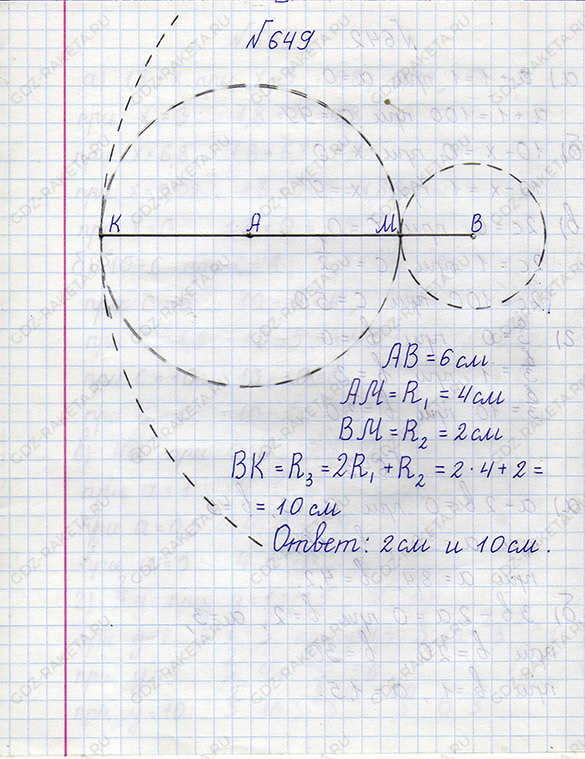 №649
K A M B
AB = 6 см
AM = R₁ = 4 см
BM = R₂ = 2 см
BK = R₃ = 2R₁ + R₂ = 2 · 4 + 2 =
= 10 см
Ответ: 2 см и 10 см.
GDZ-RAKETA.RU